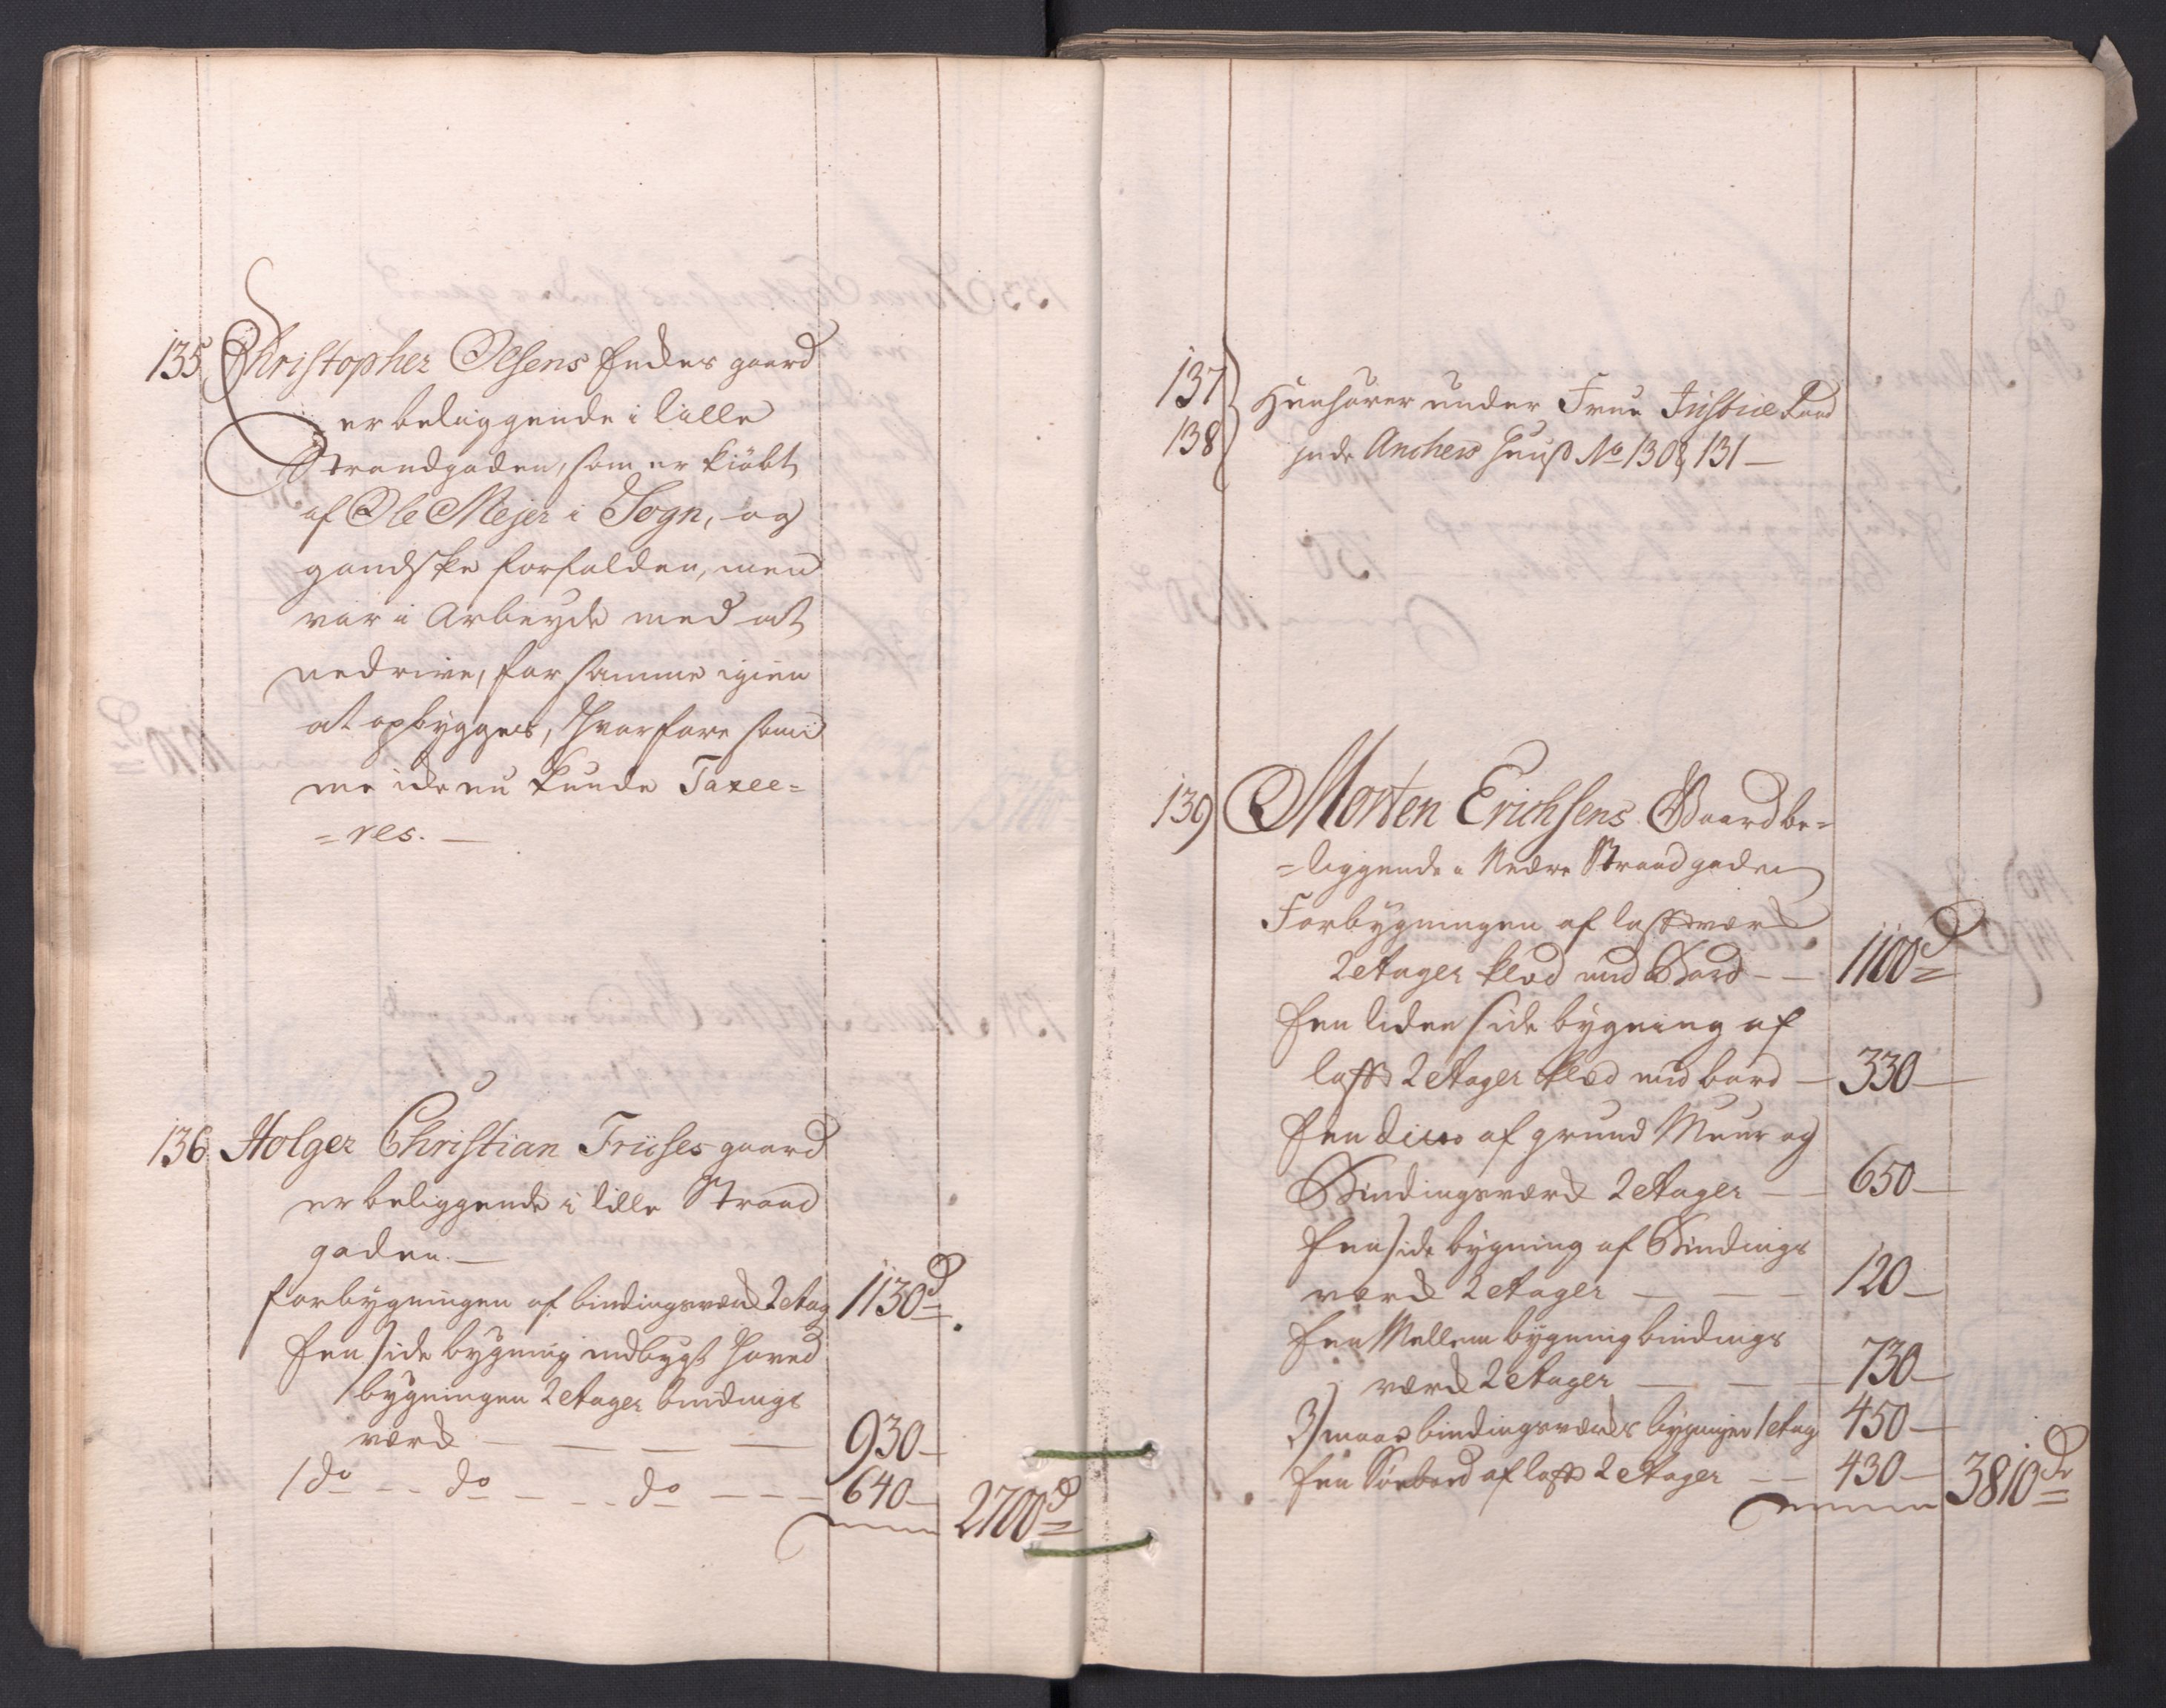 135 Christopher Olsens Endes gaard
er beliggende i lille
Strandgaden, som er kiøbt
af Ole Mejer i Sogn, og
gandske forfalden, men
var i Arbeyde med at
nedrive, for samme igien
at opbygges, hvorfore sam¯
me icke nu kunde Taxee=
=res. —
136 Holger Christian Friises gaard
er beliggende i lille Strand
gaden. —
forbygningen af bindingsverk 2 Etag 1130 d
Een side bygning indbygt Hoved
bygningen 2 Etager bindings
verk — — — — 930 —
1 do — — do — — do — — — 640 — 2700 d
137
138 Henhører under Frue Justice Raad
inde Anchers Huuß No 130 & 131 —
139 Morten Erichsens Gaard be=
=liggende i Nedre Strandgaden
Forbygningen af lafteverk
2 Etager klæd med Bord — — 1100 d
Een liden side bygning af
laft 2 Etager klæd med bord — 330 —
Een dicto af grund Muur og
Bindingsverk 2 Etager — — 650 —
Een side bygning af Bindings
verk 2 Etager — — — 120 —
Een Mellem bygning bindings
verk 2 Etager — — — 730 —
3 smaae bindingsverks bygninger 1 Etag 450 —
Een Søeboed af laft 2 Etager — — 430 — 3810 dr